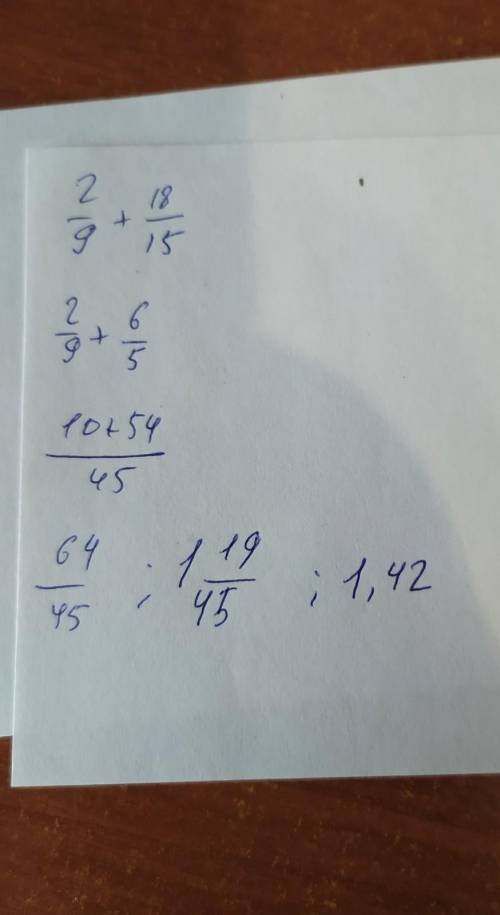 2/9 + 18/15
2/9 + 6/5
10+54/45
64/45 ; 1 19/45 ; 1,42